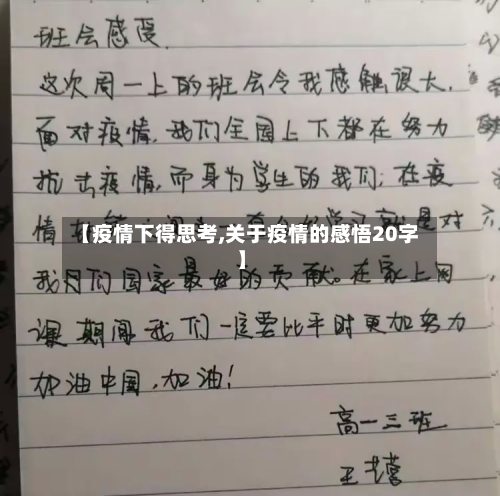 班会感受.
这次周一上的班会令我感触很大.
面对疫情,我们全国上下都在努力
抗击疫情,而身为学生的我们,在疫
情
是对
【疫情下得思考,关于疫情的感悟20字
】
我们国家最好的贡献。在家上网
课期间我们一定要比平时更加努力
加油中国,加油!
高一三班